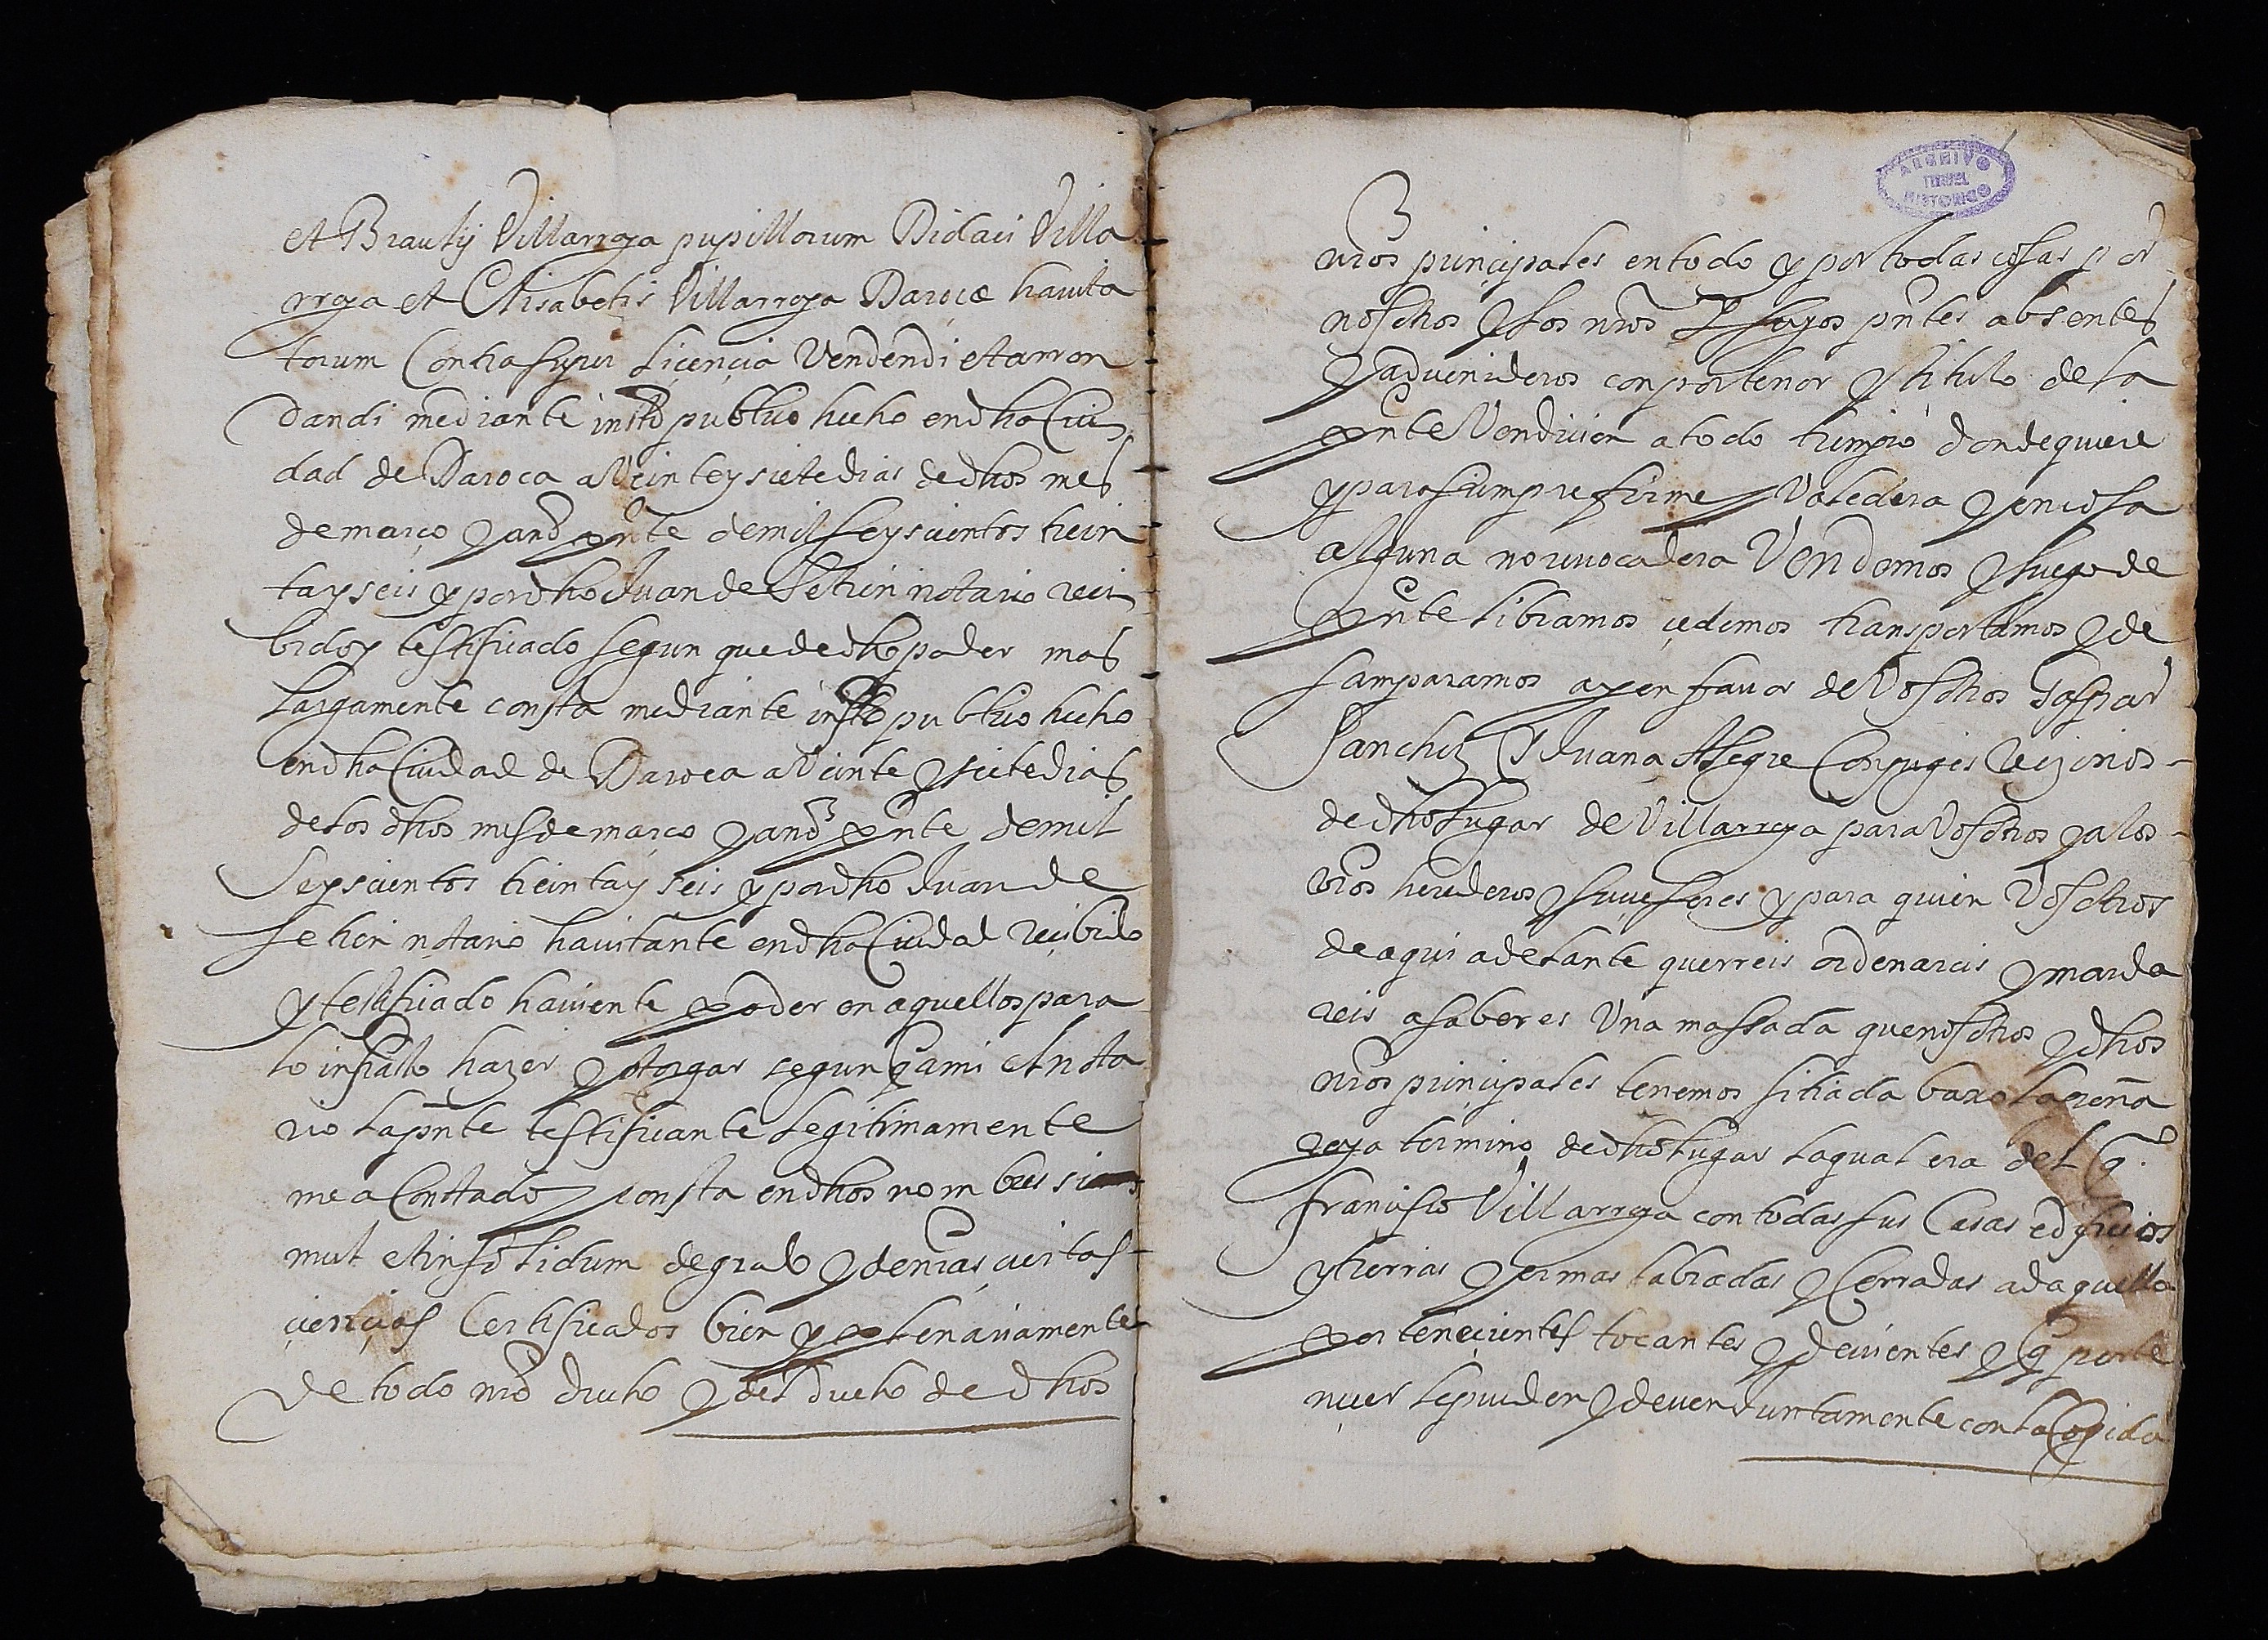 et Braulij Villarroya pupillorum Didaci Villa
rroya et Elisabetis Villarroya Daroçæ havita
torum Contrasupur Liçençia Vendendi et arron
dandi mediante insto publico hecho en dha Ciu
dad de Daroca a Veinte y siete dias de dhos mes
de março y anõ pnte de mil seyscientos trein
ta y seis y por dho Juan de Setrin notario reci
bido y testificado segun que de dho poder mas
largamente consta mediante insto publico hecho
en dha Ciudad de Daroca a Veinte y siete dias
de los dhos mes de março y anõ pnte de mil
seyscientos treinta y seis y por dho Juan de
Setrin notario havitante en dha Ciudad reçibido
y testificado haviente poder en aquellos para
lo infratto hazer y otorgar segun q a mi el nota
rio la pnte testificante legitimamente
me a Constado y consta en dhos nombres si
mul et in solidum de grado y de nras çiertas
çiençias Certificados bien y plenariamente
de todo nro drecho y del drecho de dhos
nros prinçipales en todo y por todas cosas por
nosotros y los nros y suyos pntes absentes
y advenideros con por tenor y titulo de la
pnte Vendicion a todo tiempo donde quiere
y para siempre firme Valedera y en cosa
alguna no revocadera Vendemos y luego de
pnte libramos çedemos transportamos y de
samparamos a y en favor de Vosotros Gaspar
Sanchez y Juana Alegre Conjuges Vezinos
de dho lugar de Villarroya para Vosotros y a los
vros herederos y suçesores y para quien Vosotros
de aqui adelante querreis ordenareis y manda
reis a saber es Una massada que nosotros y dhos
nros prinçipales tenemos sitiada baxo la peña
roya termino de dho lugar la qual era del q.
Françisco Villarroya con todas sus Casas edifiçios
y tierras yermas labradas y Cerradas a daquella
perteneçientes tocantes y devientes y q perte
neçer le pueden y deven Juntamente con la Cogida
ARCHIVO
TERUEL
HISTORICO